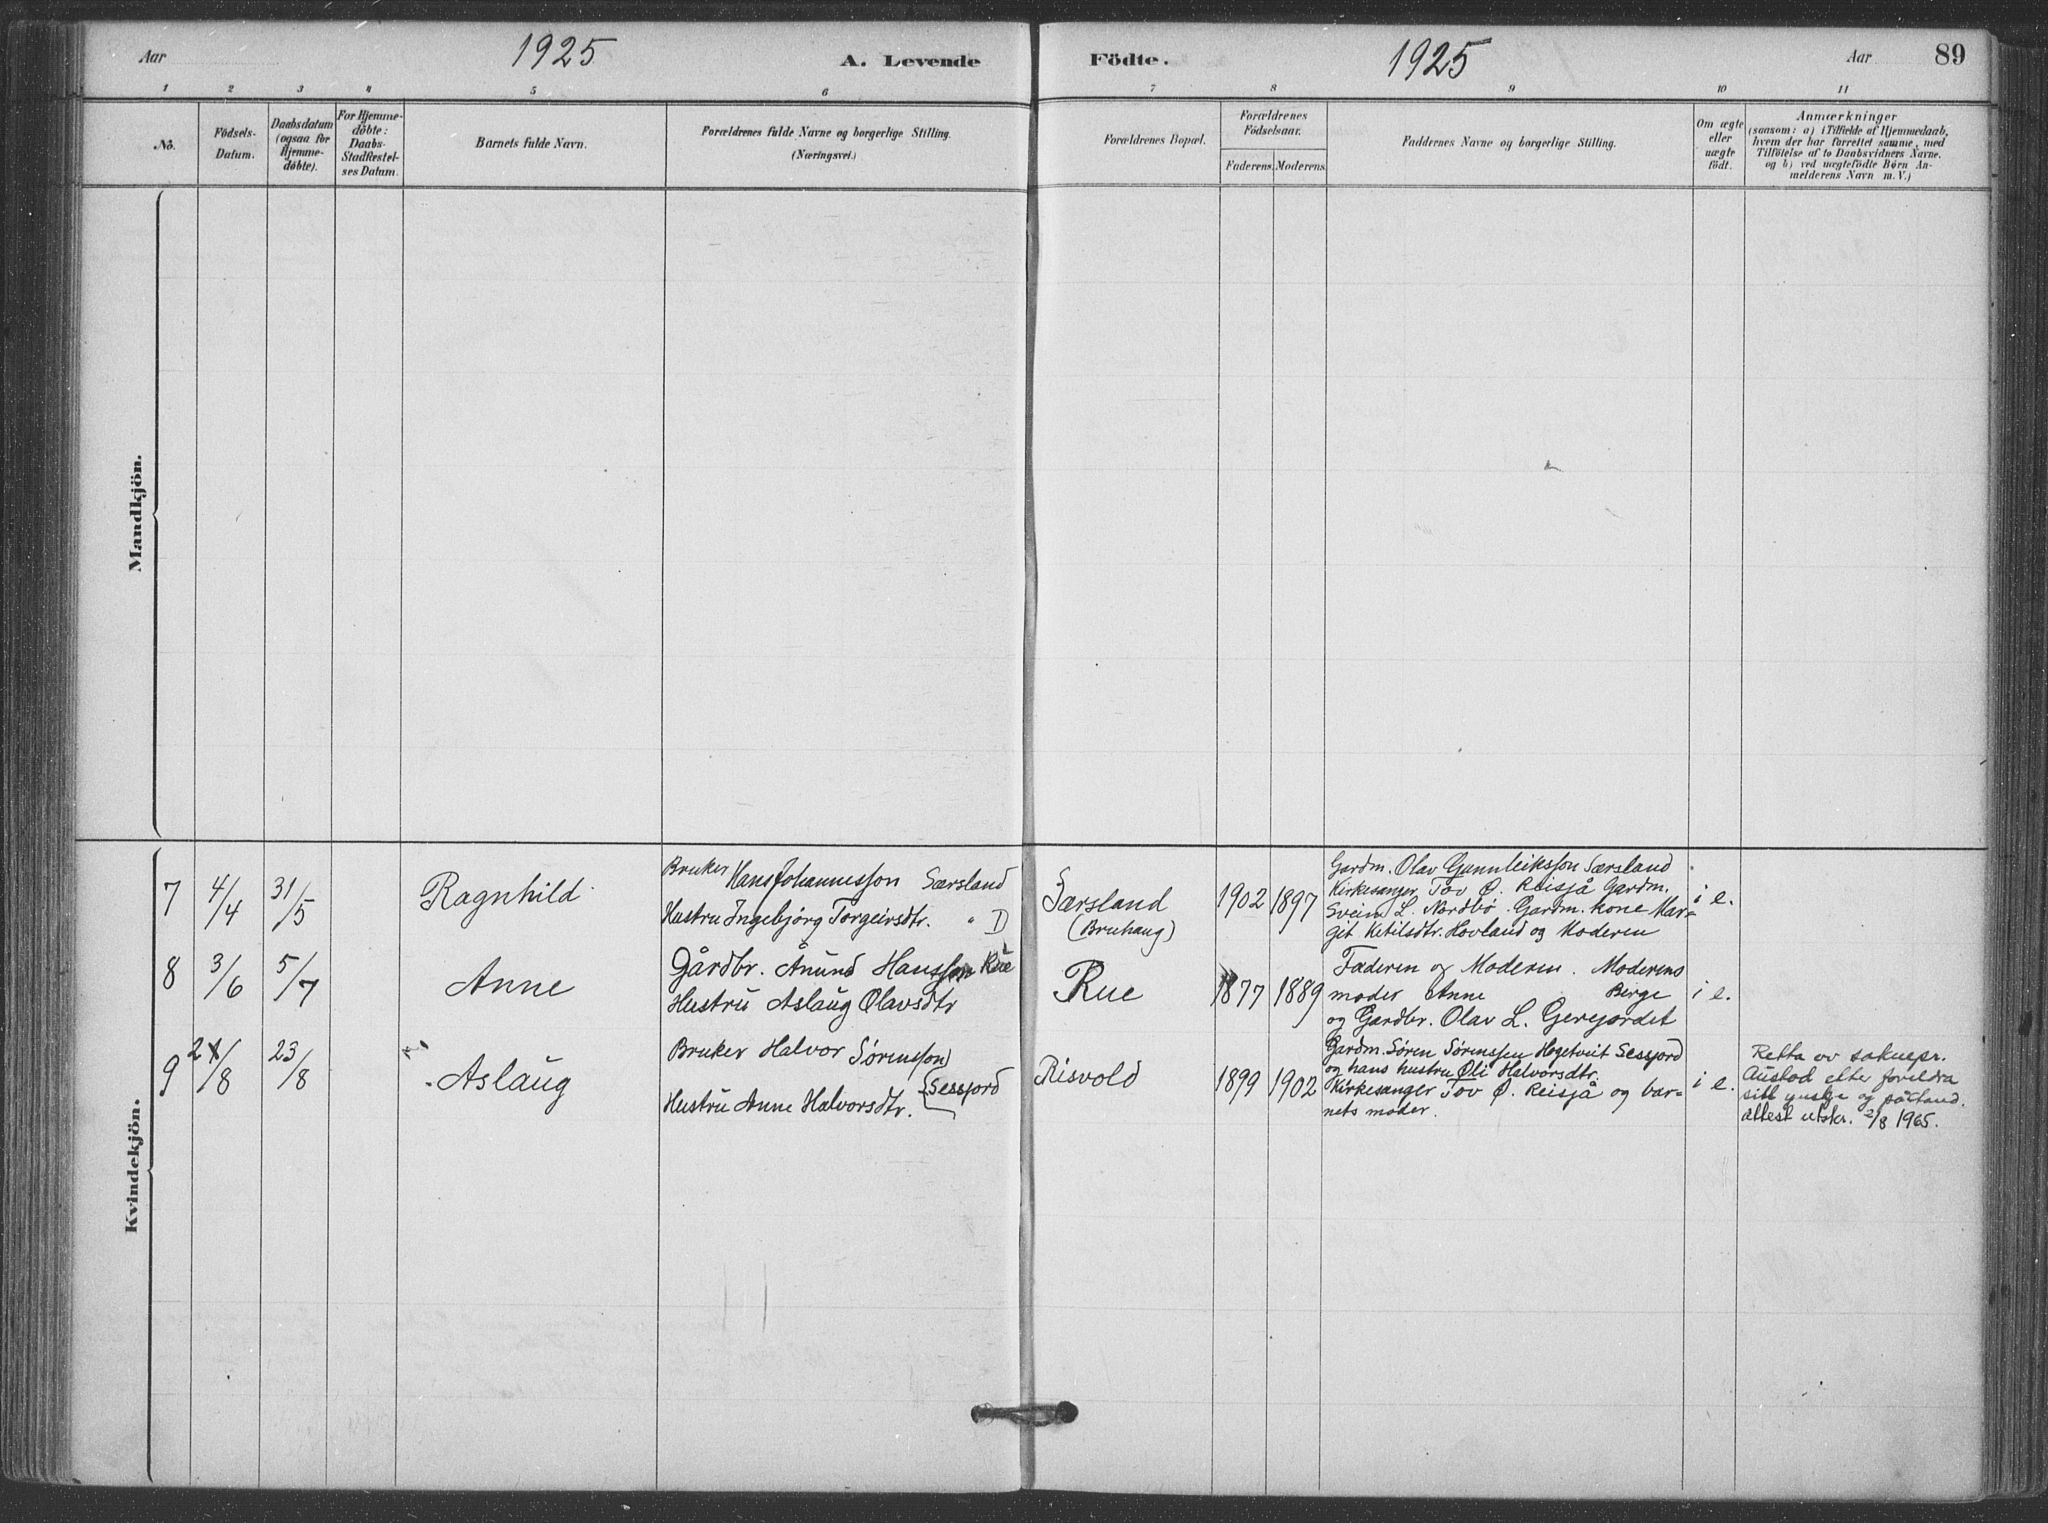 Aar 1925 A. Levende Födte. 1925 Aar 89
1 2 3 4 5 6 7 8 9 10 11
No.
Födsels-
Datum.
Daabsdatum
(ogsaa for
Hjemme-
døbte).
For Hjemme-
døbte:
Daabs-
Stadfæstel-
ses Datum.
Barnets fulde Navn.
Forældrenes fulde Navne og borgerlige Stilling.
(Næringsvei.)
Forældrenes Bopæl.
Forældrenes
Födselsaar.
Faderens. Moderens.
Faddernes Navne og borgerlige Stilling.
Om ægte
eller
uægte
födt.
Anmærkninger
(saasom: a) i Tilfælde af Hjemmedaab,
hvem der har forrettet samme, med
Tilföielse af to Daabsvidners Navne.
og b) ved uægtefödte Børn An-
melderens Navn m. V.)
Mandkjön.
Kvindekjön.
7 4/4 31/5 Ragnhild
Bruker Hans Johannessøn Særsland
Hustru Ingebjörg Torgeirsdtr. " D
Særsland
(Bruhaug)
1902 1897
Gardm. Olav Gunnleiksson Særsland
Kirkesanger Tov Ø. Reisjå Gardm.
Svein L. Nordbø. Gardm. kone Mar-
git Ketilsdtr. Hovland og Moderen
i e.
8 3/6 5/7 Anne
Gårdbr. Ånund Hansson Rue
Hustru Aslaug Olavsdtr
Rue
1877 1889
Faderen og Moderen. Moderens
moder Anne Berge
og Gardbr. Olav L. Gerejordet
i e.
9 /8 23/8 Aslaug
Bruker Halvor Sørensson
Sessjord
Hustru Anne Halvorsdtr.
Risvold
1899 1902
Gardm. Søren Sørenssen Høgetveit Sessjord
og hans hustru Øli Halvorsdtr.
Kirkesanger Tov Ø. Reisjå og bar-
nets moder.
i e.
Retta ov soknepr.
Austad etter foreldra
sitt ynskje og påstand.
attest utskr. 2/8 1965.